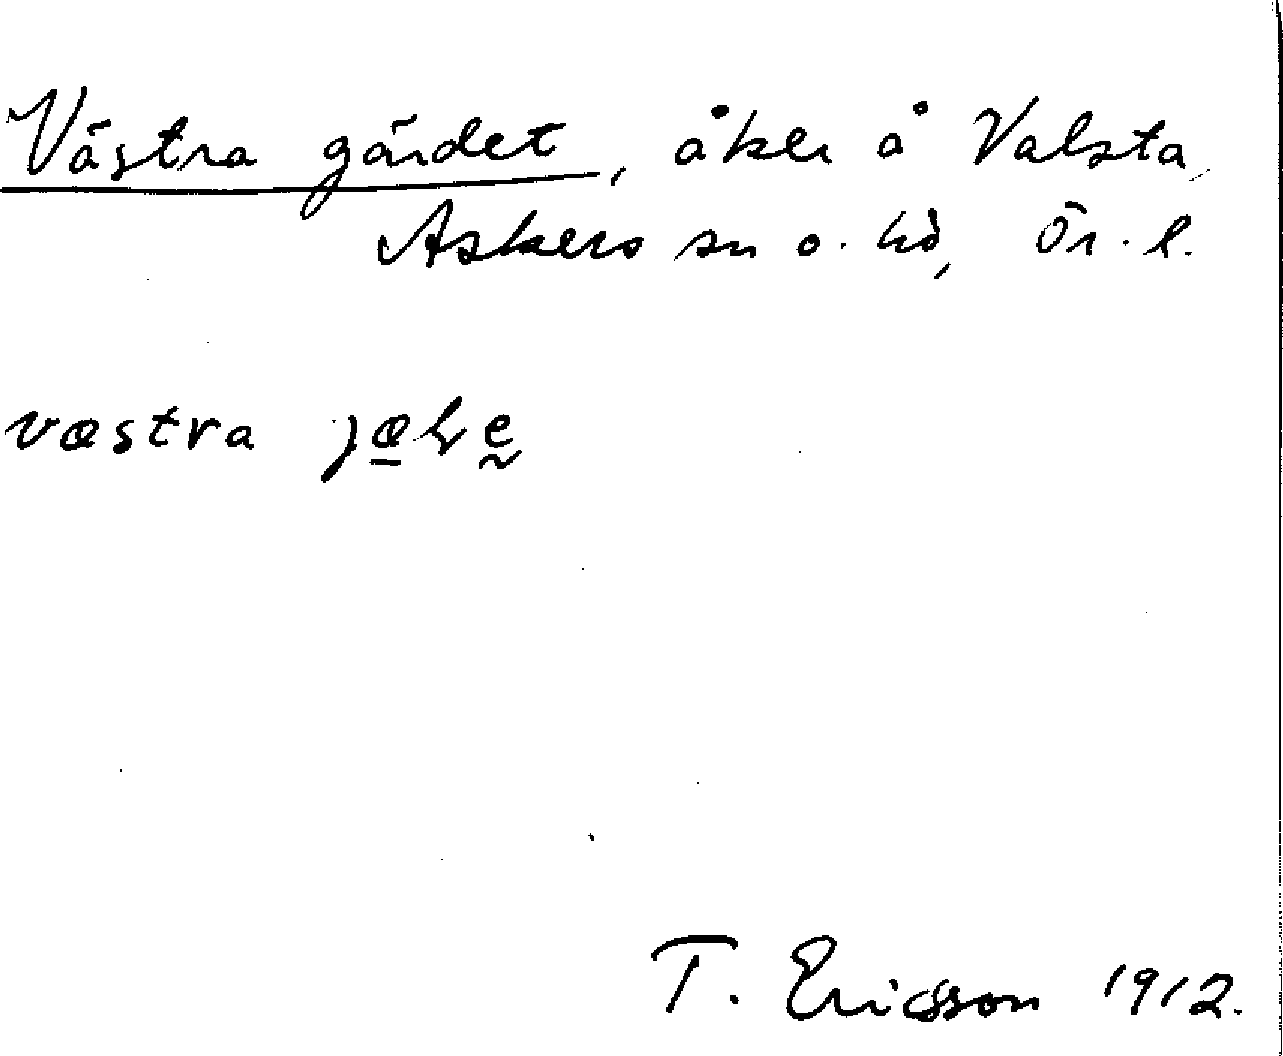 Västra gärdet, åker å Valsta,
Askers sn o. hd, Ör. l.
væstra
T. Ericsson 1912.